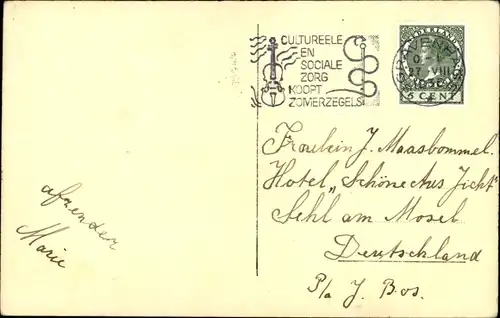 CULTUREELE
EN
SOCIALE
ZORG
KOOPT
ZOMERZEGELS
'S-GRAVENHAGE
27 VIII
5 CENT
Froulein J. Maasbommel.
Hotel „Schöne Aus Zicht"
Sehl am Mosel
Deutschland
P/a J. Bos.
afzender
Marie